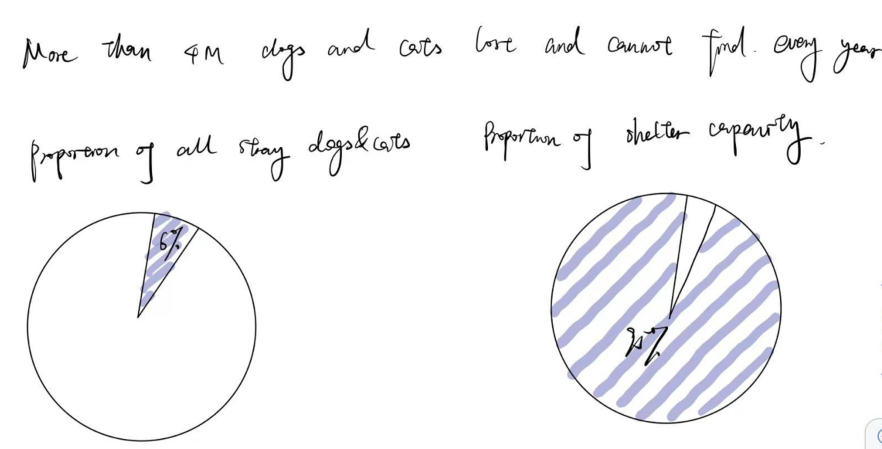 More than 4M dogs and cats lose and cannot find. every year
Proportion of all stray dogs&cats
Proportion of shelter capacity.
6%